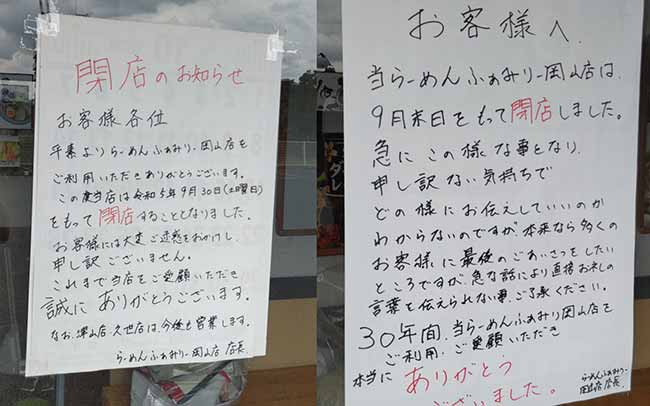 閉店のお知らせ
お客様各位
平素より らーめんふぁみりー岡山店を
ご利用いただきありがとうございます。
この度当店は令和5年9月30日(土曜日)
をもって閉店することとなりました。
お客様には大変ご迷惑をおかけし
申し訳ございません。
これまで当店をご愛顧いただき
誠にありがとうございます。
なお、津山店・久世店は、今後も営業します。
らーめんふぁみりー岡山店 店長
お客様へ
当らーめんふぁみりー岡山店は、
9月末日をもって閉店しました。
急にこの様な事となり、
申し訳ない気持ちで
どの様にお伝えしていいのか
わからないのですが、本来なら多くの
お客様に最後のごあいさつをしたい
ところですが、急な話により直接お礼の
言葉を伝えられない事、ご了承ください。
30年間、当らーめんふぁみりー岡山店を
ご利用・ご愛顧いただき
本当にありがとう
ございました。
らーめんふぁみりー
岡山店 店長